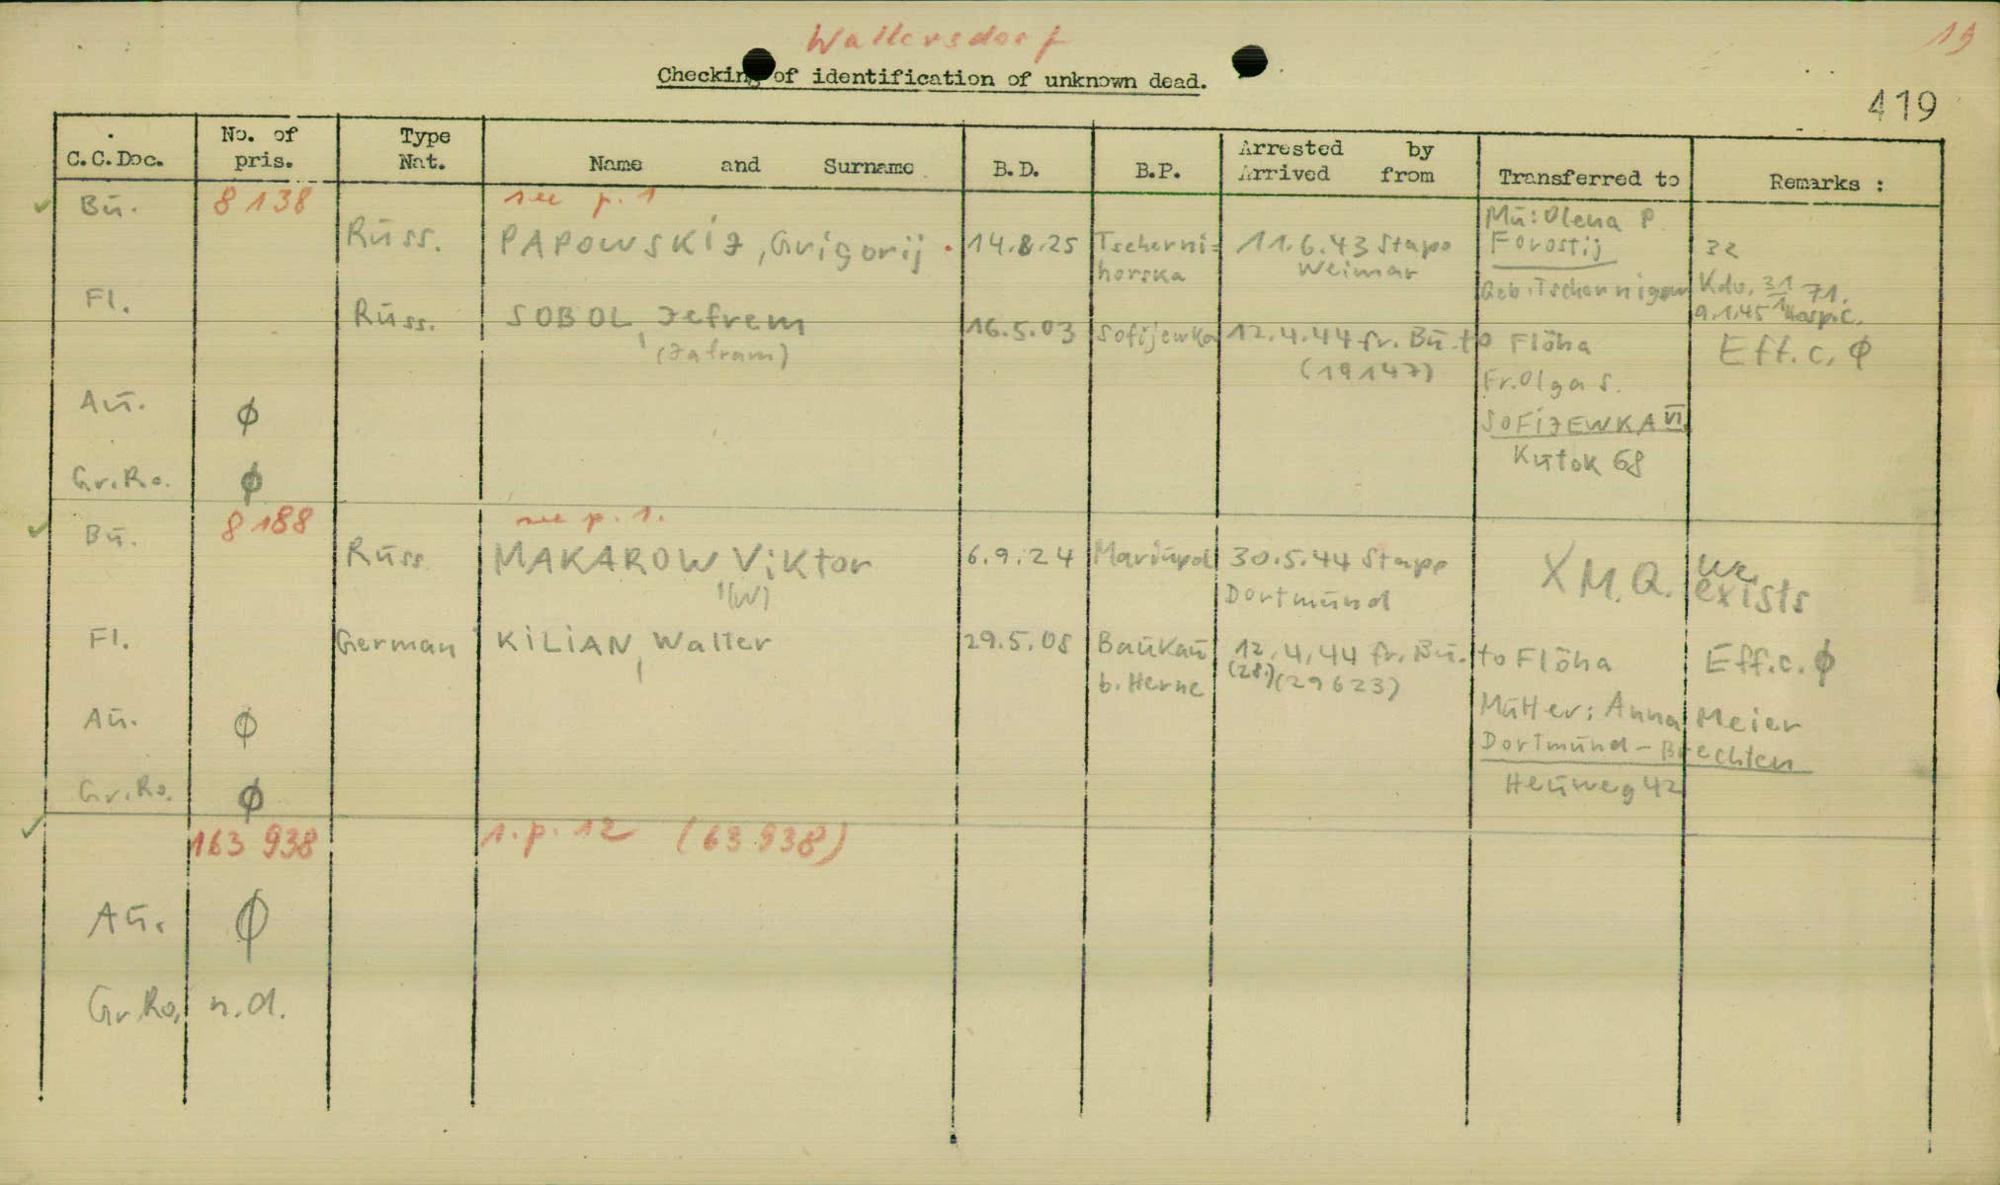 Wallersdorf
19
Checking of identification of unknown dead.
419
C.C.Doc.
No. of pris.
Type Nat.
Name and Surname
B.D.
B.P.
Arrested by
Arrived from
Transferred to
Remarks :
Bū. 8138 see p. 1
Rūss. PAPOWSKIJ, Grigorij 14.8.25 Tscherni=
horska
11.6.43 Stapo
Weimar
Mū: Olena P.
Forostij
Geb. Tschernigow
32
Kdo. 31 71.
9.1.45
Fl. Rūss. SOBOL, Jefrem 16.5.03 Sofijewka 12.4.44 fr. Bū. to Flöha Eff.c. ϕ
(Jafram)
(19147)
Fr. Olga S.
SOFIJEWKA VI
Kūtok 68
Aū. ϕ
Gr.Ro. ϕ
Bū. 8188 see p. 1.
Rūss MAKAROW, Viktor 6.9.24 Mariūpol 30.5.44 Stapo
(W)
Dortmūnd
X M.Q. exists
Fl. German KILIAN, Walter 29.5.08 Baūkaū
b. Herne
12.4.44 fr. Bū. to Flöha Eff.c. ϕ
(28.) (29623)
Mūtter: Anna Meier
Dortmūnd-Brechten
Heūweg 42
Aū. ϕ
Gr.Ro. ϕ
163 938 1. p. 12 (63 938)
Aū. ϕ
Gr.Ro. n.d.